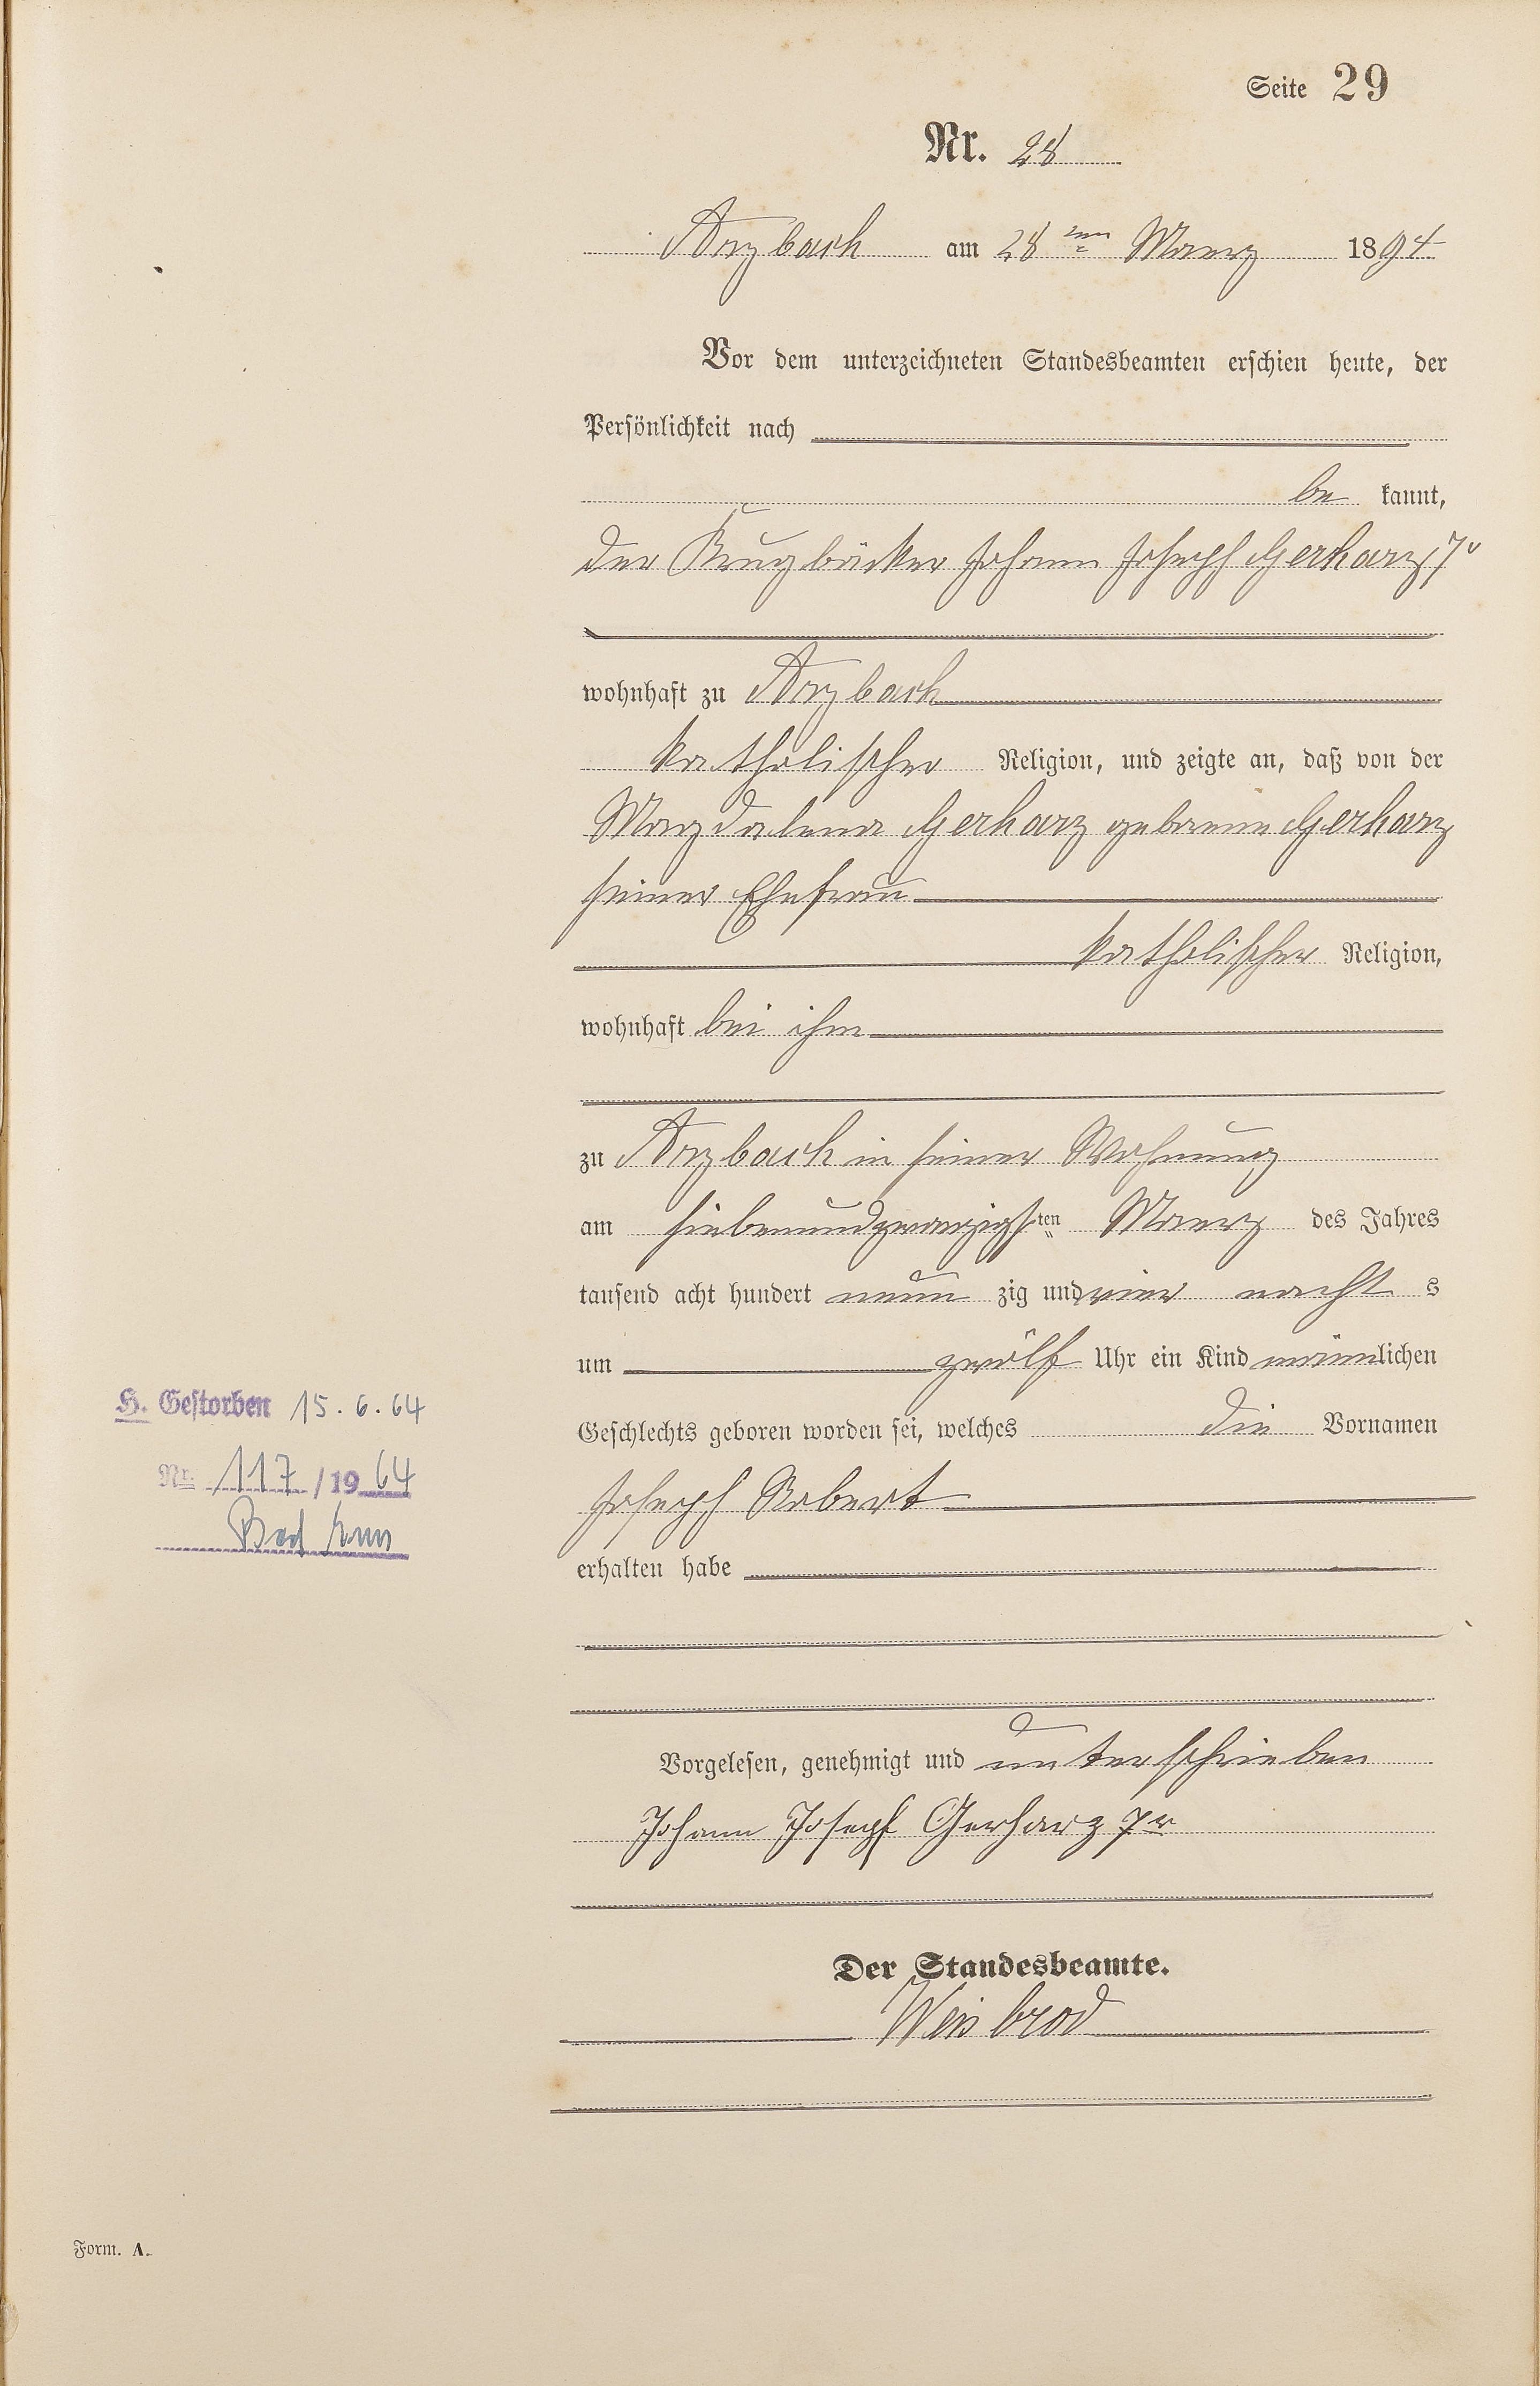 Seite 29
Nr. 28
Arzbach am 28ten Maerz 1894
Vor dem unterzeichneten Standesbeamten erschien heute, der
Persönlichkeit nach
be kannt,
der Krugbäcker Johann Joseph Gerharz 7r
wohnhaft zu Arzbach
katholischer Religion, und zeigte an, daß von der
Magdalena Gerharz geborene Gerharz
seiner Ehefrau
katholischer Religion,
wohnhaft bei ihm
zu Arzbach in seiner Wohnung
am siebenundzwanzigsten Maerz des Jahres
tausend acht hundert neun zig und vier nacht s
um zwölf Uhr ein Kind männlichen
Geschlechts geboren worden sei, welches die Vornamen
H. Gestorben 15.6.64
Nr. 117/1964
Bad Ems
Joseph Robert
erhalten habe
Vorgelesen, genehmigt und unterschrieben
Johann Joseph Gerharz 7r
Der Standesbeamte.
Weisbrod
Form. A.